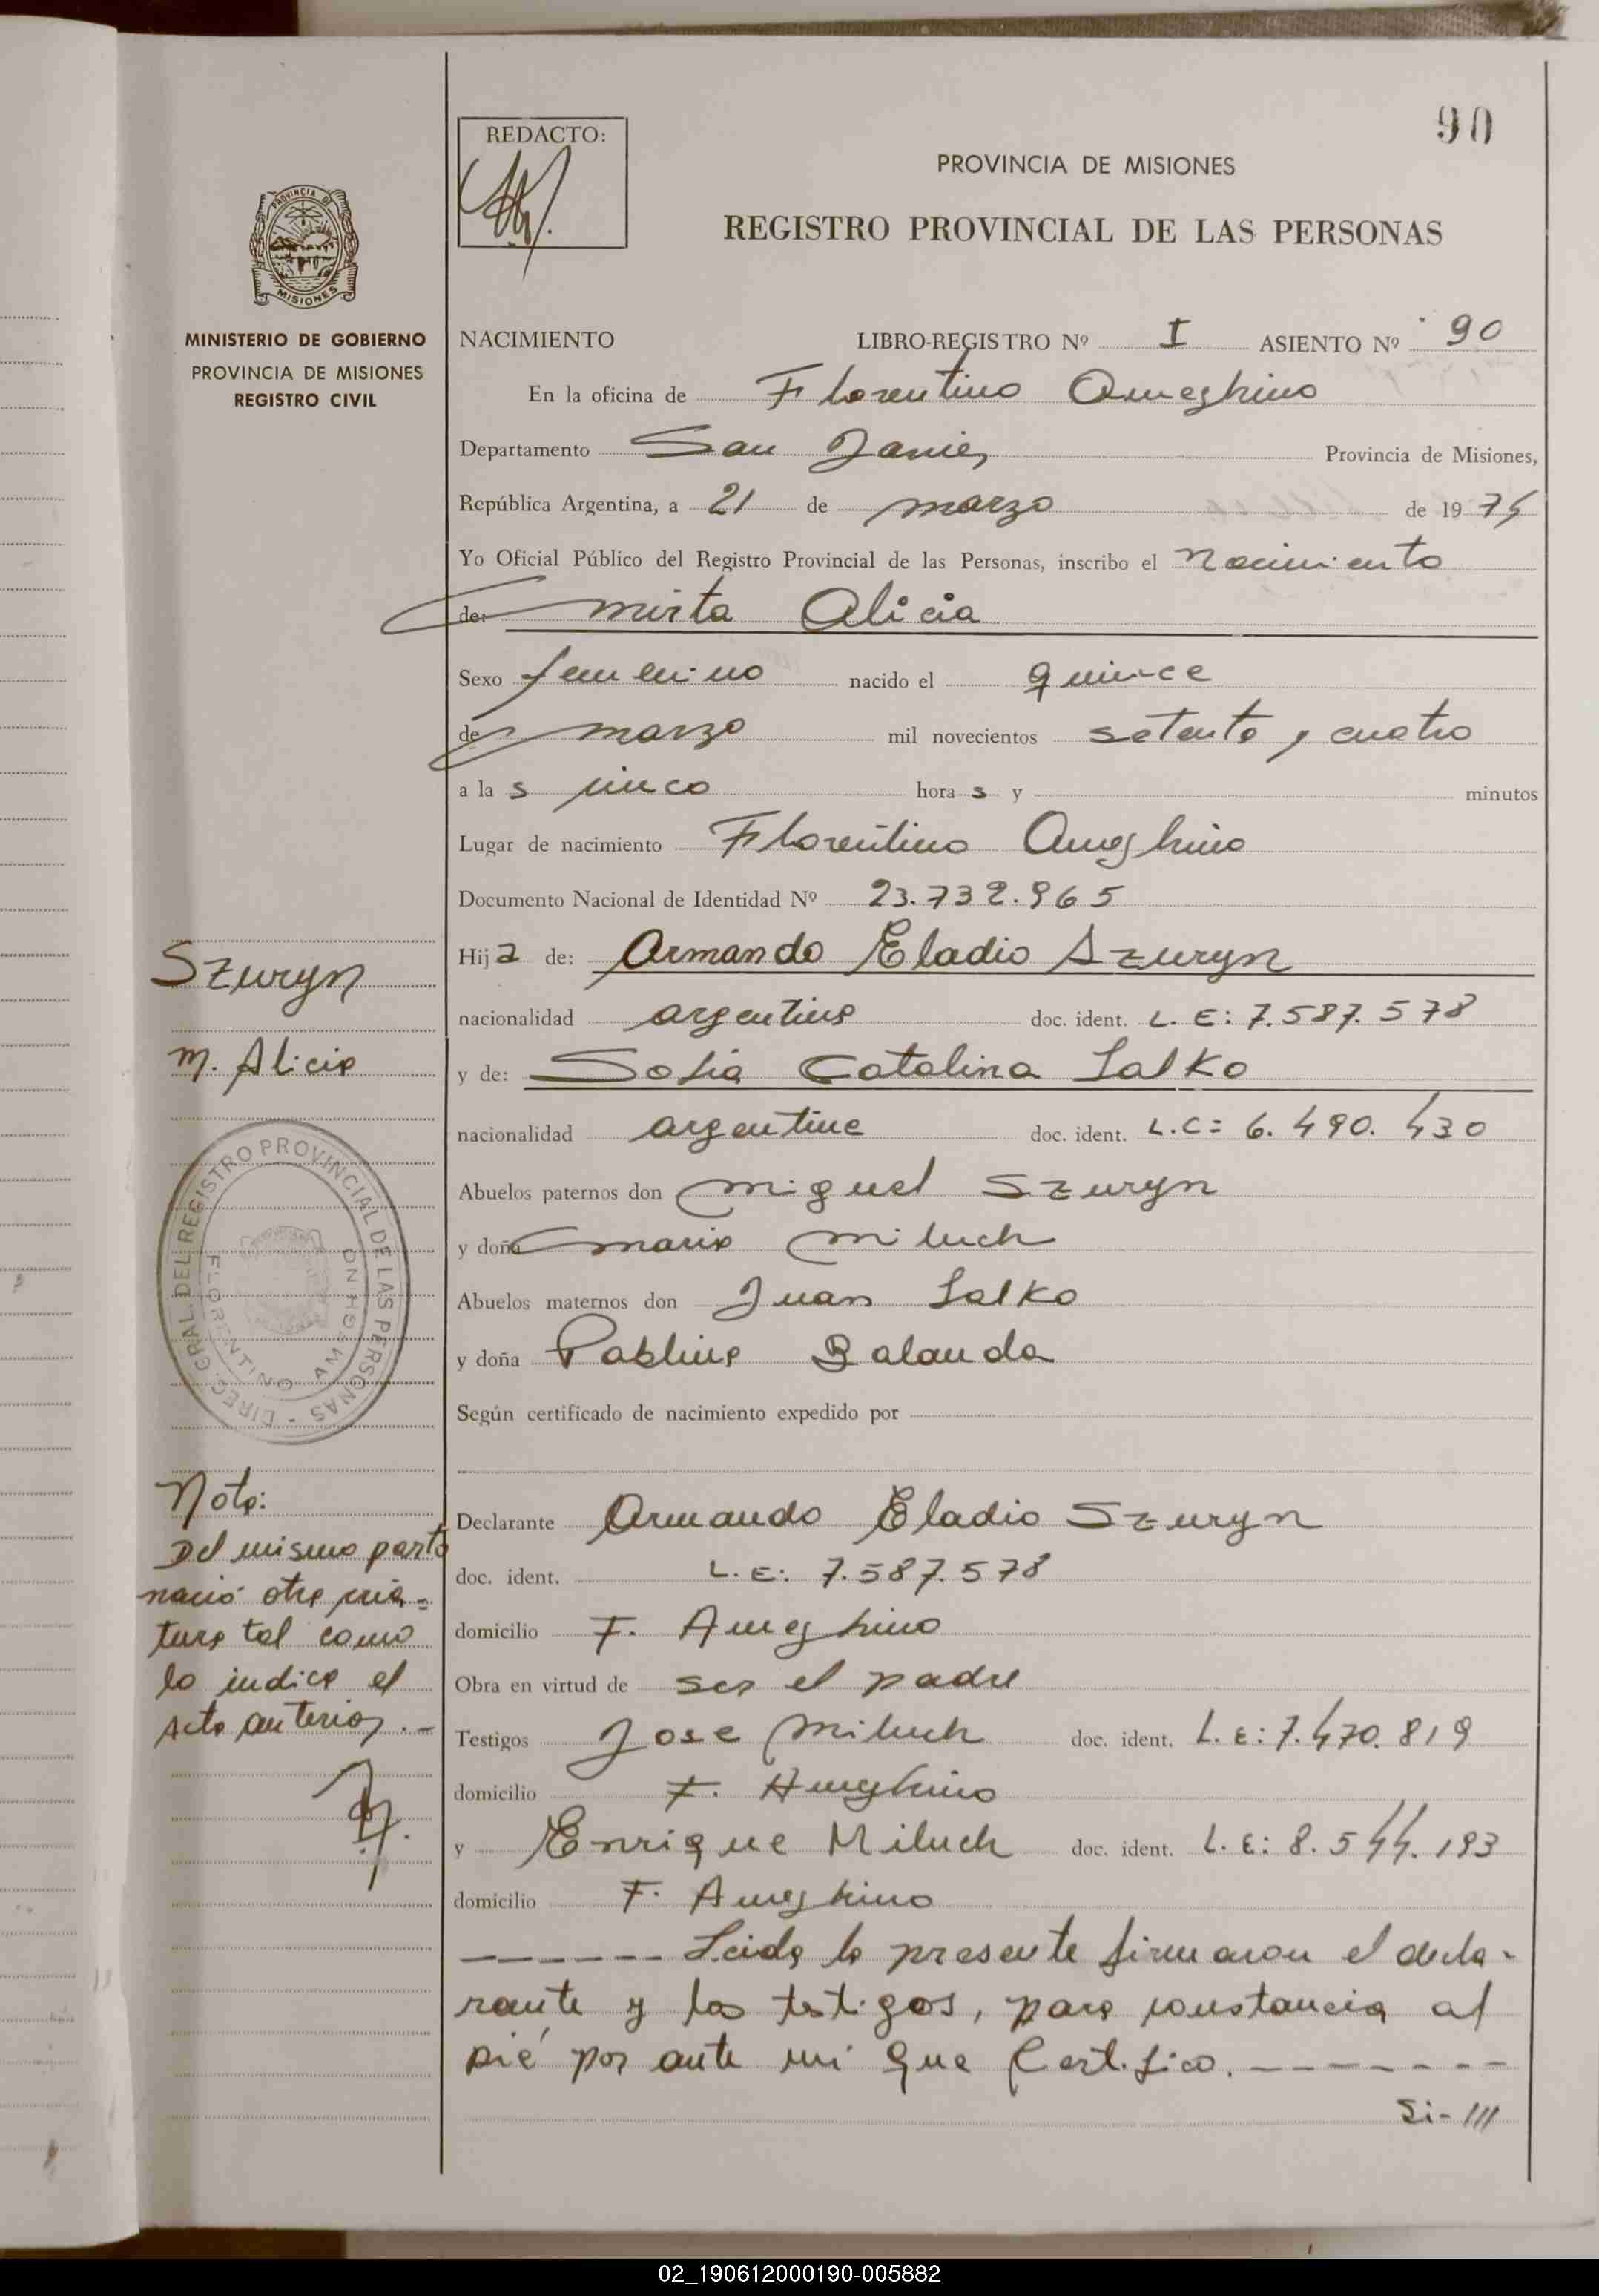 90
REDACTO:
PROVINCIA DE MISIONES
REGISTRO PROVINCIAL DE LAS PERSONAS
PROVINCIA DE
MISIONES
MINISTERIO DE GOBIERNO
PROVINCIA DE MISIONES
REGISTRO CIVIL
NACIMIENTO LIBRO-REGISTRO Nº I ASIENTO Nº 90
En la oficina de Florentino Ameghino
Departamento San Javier Provincia de Misiones,
República Argentina, a 21 de marzo de 1974
Yo Oficial Público del Registro Provincial de las Personas, inscribo el Nacimiento
de: Mirta Alicia
Sexo femenino nacido el quince
de marzo mil novecientos setenta y cuatro
a las cinco horas y minutos
Lugar de nacimiento Florentino Ameghino
Documento Nacional de Identidad Nº 23.732.965
Hija de: Armando Eladio Szuryn
nacionalidad argentino doc. ident. L. E: 7.587.578
y de: Sofia Catalina Salko
nacionalidad argentina doc. ident. L.C: 6.490.430
Abuelos paternos don Miguel Szuryn
y doña Maria Miluch
Abuelos maternos don Juan Salko
y doña Pablina Balanda
Según certificado de nacimiento expedido por
Declarante Armando Eladio Szuryn
doc. ident. L. E: 7.587.578
domicilio F. Ameghino
Obra en virtud de ser el padre
Testigos Jose Miluch doc. ident. L. E: 7.470.819
domicilio F. Ameghino
y Enrique Miluch doc. ident. L. E: 8.544.193
domicilio F. Ameghino
------ Leida la presente firmaron el decla-
rante y los testigos, para constancia al
pié por ante mi que Certifico. -------
Si- III
Szuryn
M. Alicia
DIREC. GRAL. DEL REGISTRO PROVINCIAL DE LAS PERSONAS -
FLORENTINO AMEGHINO
Nota:
Del mismo parto
nació otra cria=
tura tal como
lo indica el
acta anterior.-
02_190612000190-005882